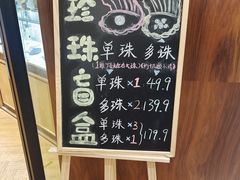 珍珠盲盒
单珠 多珠
单珠×1 49.9
多珠×2 139.9
单珠×3
多珠×1 179.9